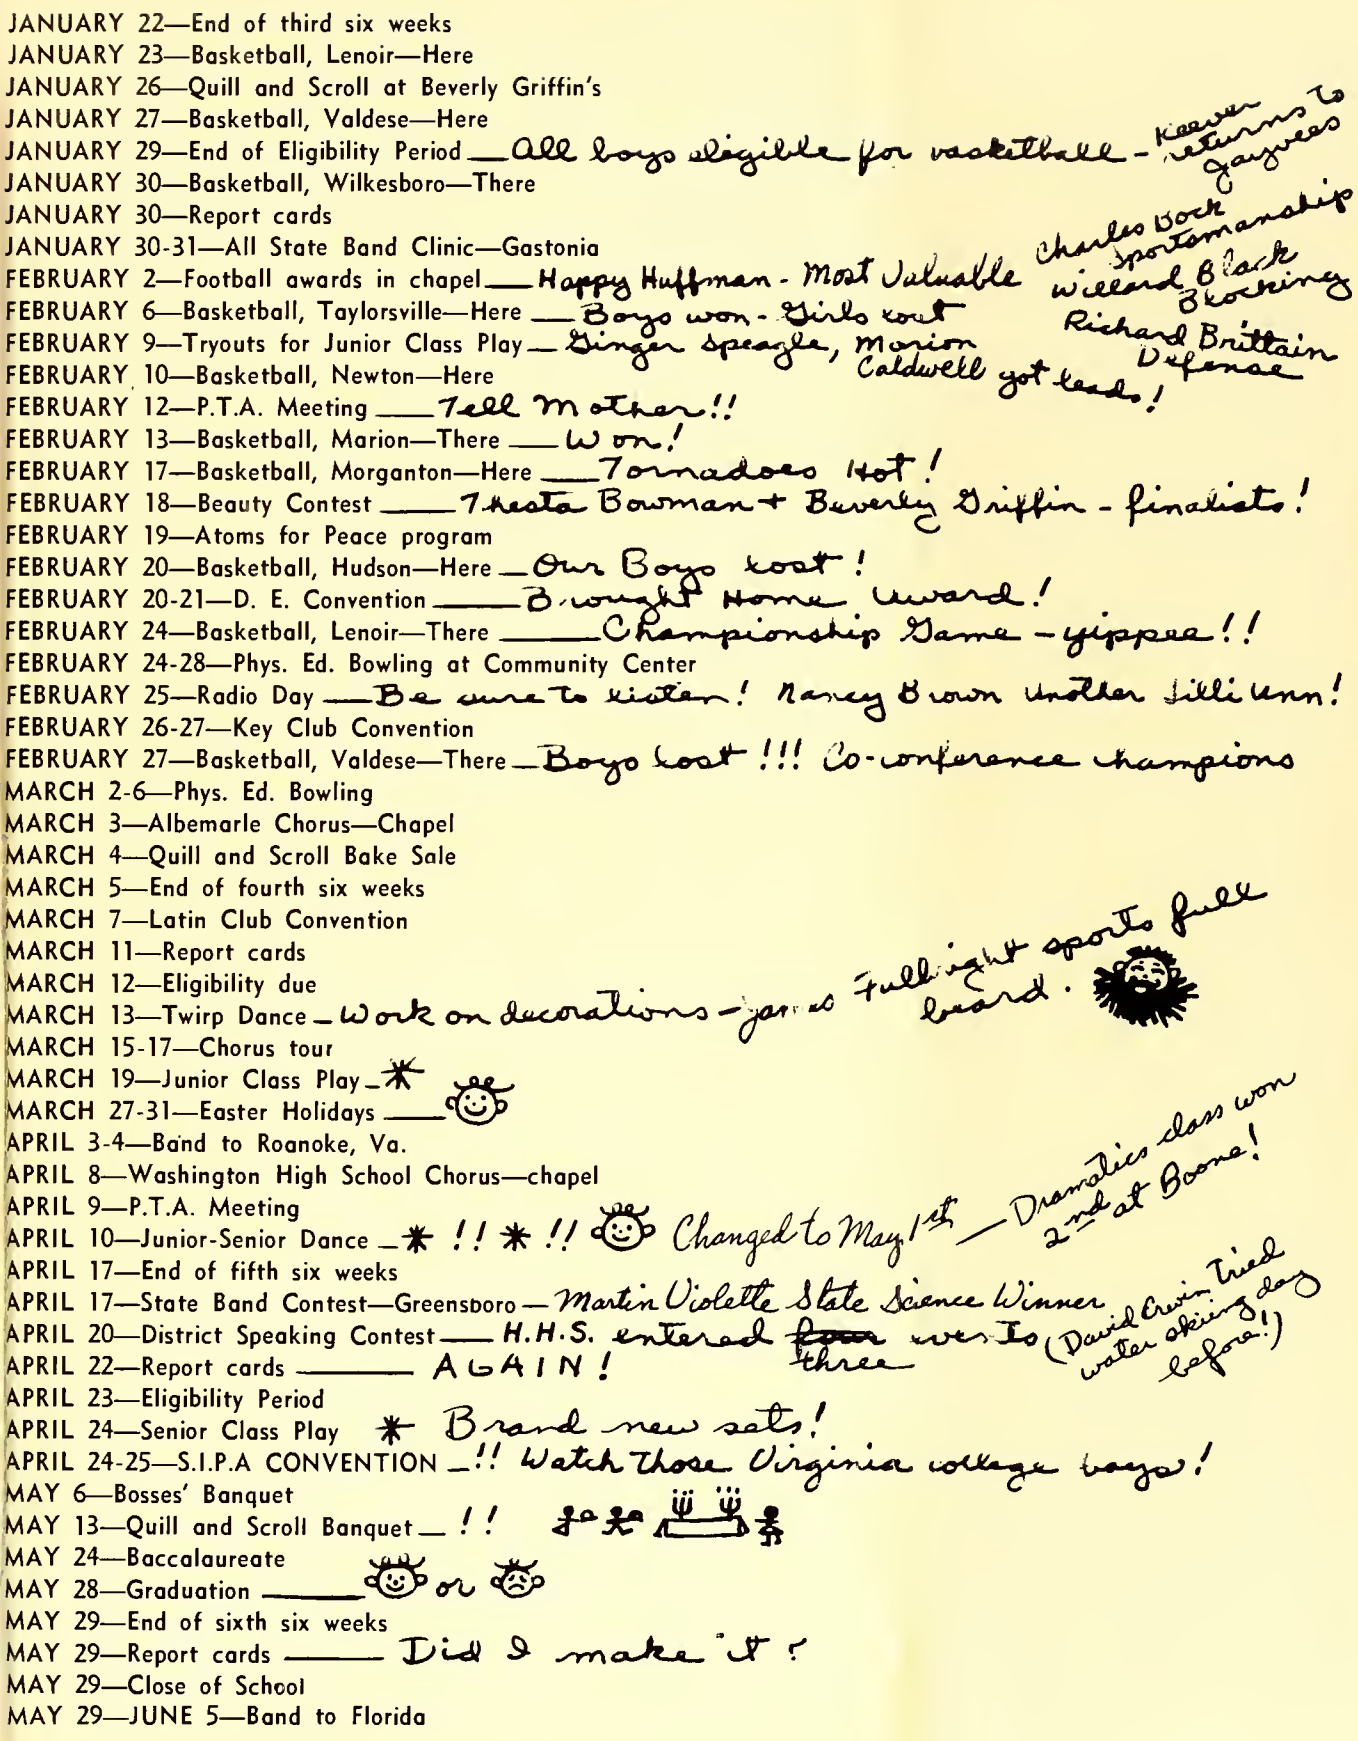 JANUARY 22—End of third six weeks
JANUARY 23—Basketball, Lenoir—Here
JANUARY 26—Quill and Scroll at Beverly Griffin's
JANUARY 27—Basketball, Valdese—Here
JANUARY 29—End of Eligibility Period — All boys eligible for basketball - Keever returns to Jayvees
JANUARY 30—Basketball, Wilkesboro—There
JANUARY 30—Report cards
JANUARY 30-31—All State Band Clinic—Gastonia
FEBRUARY 2—Football awards in chapel — Happy Huffman - Most Valuable
Charles Bock
Sportsmanship
Willard Black
Blocking
Richard Brittain
Defense
FEBRUARY 6—Basketball, Taylorsville—Here — Boys won - Girls lost
FEBRUARY 9—Tryouts for Junior Class Play — Ginger Speagle, Marion
Caldwell got leads!
FEBRUARY 10—Basketball, Newton—Here
FEBRUARY 12—P.T.A. Meeting — Tell Mother!!
FEBRUARY 13—Basketball, Marion—There — Won!
FEBRUARY 17—Basketball, Morganton—Here — Tornadoes Hot!
FEBRUARY 18—Beauty Contest — Theata Bowman + Beverly Griffin - finalists!
FEBRUARY 19—Atoms for Peace program
FEBRUARY 20—Basketball, Hudson—Here — Our Boys lost!
FEBRUARY 20-21—D. E. Convention — Brought Home Award!
FEBRUARY 24—Basketball, Lenoir—There — Championship Game - yippee!!
FEBRUARY 24-28—Phys. Ed. Bowling at Community Center
FEBRUARY 25—Radio Day — Be sure to listen! Nancy Brown another Lilli Ann!
FEBRUARY 26-27—Key Club Convention
FEBRUARY 27—Basketball, Valdese—There — Boys lost!!! Co-conference champions
MARCH 2-6—Phys. Ed. Bowling
MARCH 3—Albemarle Chorus—Chapel
MARCH 4—Quill and Scroll Bake Sale
MARCH 5—End of fourth six weeks
MARCH 7—Latin Club Convention
MARCH 11—Report cards
MARCH 12—Eligibility due
MARCH 13—Twirp Dance — Work on decorations - James Fullbright sports full
beard.
MARCH 15-17—Chorus tour
MARCH 19—Junior Class Play — *
MARCH 27-31—Easter Holidays —
APRIL 3-4—Band to Roanoke, Va.
APRIL 8—Washington High School Chorus—chapel
APRIL 9—P.T.A. Meeting
APRIL 10—Junior-Senior Dance — * !! * !! Changed to May 1st — Dramatics class won
2nd at Boone!
APRIL 17—End of fifth six weeks
APRIL 17—State Band Contest—Greensboro — Martin Violette State Science Winner
APRIL 20—District Speaking Contest — H.H.S. entered four events (David Ervin tried
three
water skiing day
before!)
APRIL 22—Report cards — AGAIN!
APRIL 23—Eligibility Period
APRIL 24—Senior Class Play * Brand new sets!
APRIL 24-25—S.I.P.A CONVENTION — !! Watch those Virginia college boys!
MAY 6—Bosses' Banquet
MAY 13—Quill and Scroll Banquet — !!
MAY 24—Baccalaureate
MAY 28—Graduation — or
MAY 29—End of sixth six weeks
MAY 29—Report cards — Did I make it?
MAY 29—Close of School
MAY 29—JUNE 5—Band to Florida